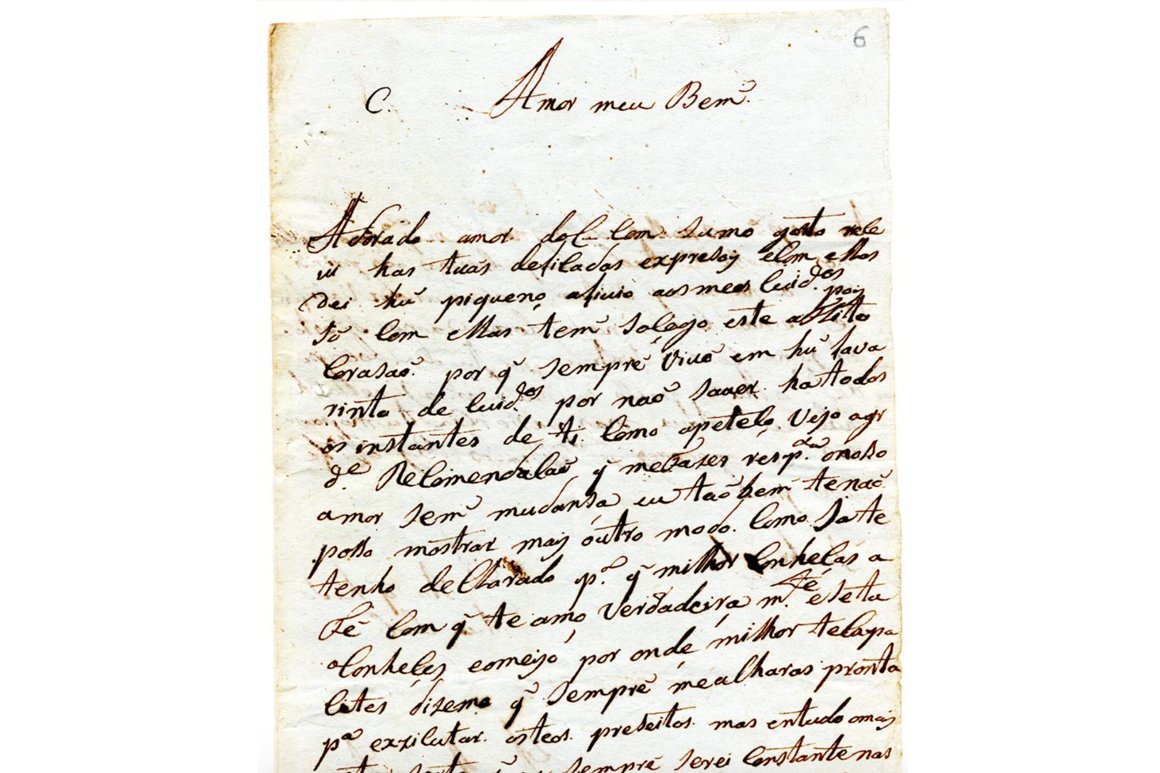 6
C. Amor meu Bem
Adorado amor do C. Com sumo gosto rece
vi has tuas defiladas expresoỹ e Com ellas
dei hũ piqueno alivio aos meos Cuid.dos pois
só Com ellas tem Sosego este aflito
Corasaõ por q̃ sempre vivo em hũ lava
rinto de Cuid.dos por naõ saver ha todos
os instantes de ti Como apeteso, Vejo a gr
d.e Recomendasaõ q̃ me fazes resp.to o noso
amor sem mudansa eu taõ bem te naõ
poso mostrar mais outro modo Como Ja te
tenho declarado p.a q̃ milhor Conhesas a
Fé Com q̃ te amo Verdadeira m.te e se ta
Conheses o meiso por onde milhor te capa
sites diseme q̃ sempre me acharas pronta
p.a exzicutar os teos preseitos mas en tudo o mais
sorte q̃ sempre serei Constante nas